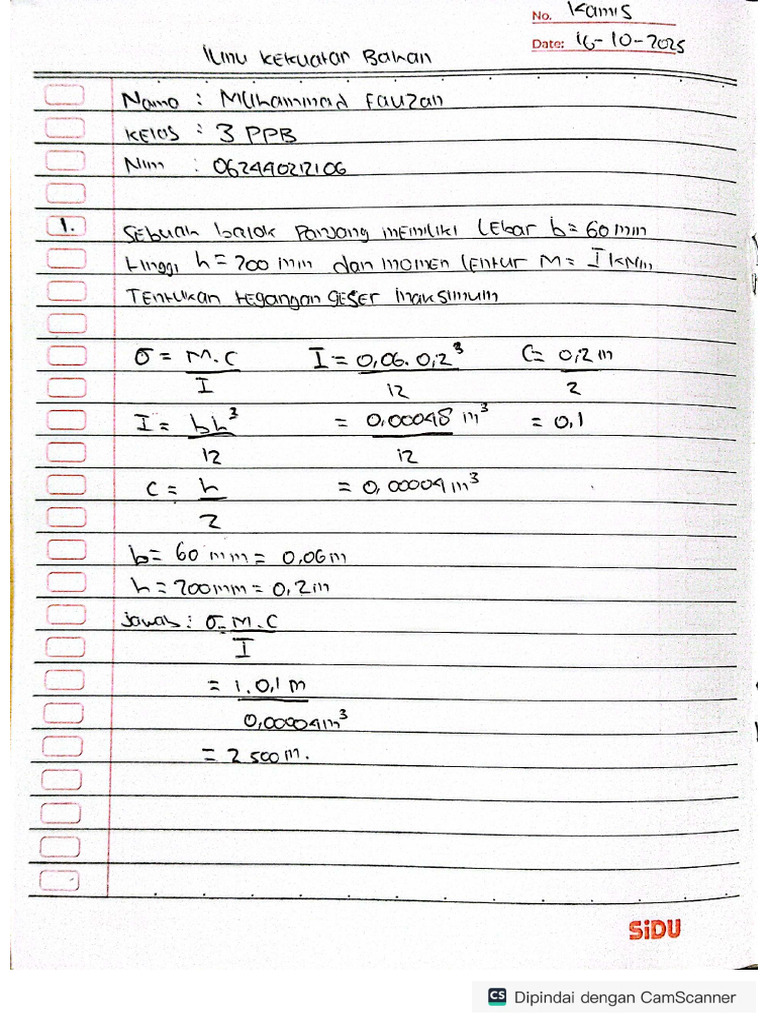 No. Kamis
Date: 16-10-2025
Ilmu Kekuatan Bahan
Nama : Muhammad Fauzan
Kelas : 3 PPB
Nim : 062440212106
1. Sebuah balok Panjang memiliki Lebar b = 60 mm
tinggi h = 200 mm dan momen lentur M = 1 kNm
Tentukan tegangan geser maksimum
σ = M.C / I I = 0,06. 0,2³ / 12 C = 0,2 m / 2
I = bh³ / 12 = 0,00048 m³ / 12 = 0,1
C = h / 2 = 0,00004 m³
b = 60 mm = 0,06 m
h = 200 mm = 0,2 m
Jawab : σ = M.C / I
= 1. 0,1 m / 0,00004 m³
= 2 500 m.
SiDU
CS Dipindai dengan CamScanner